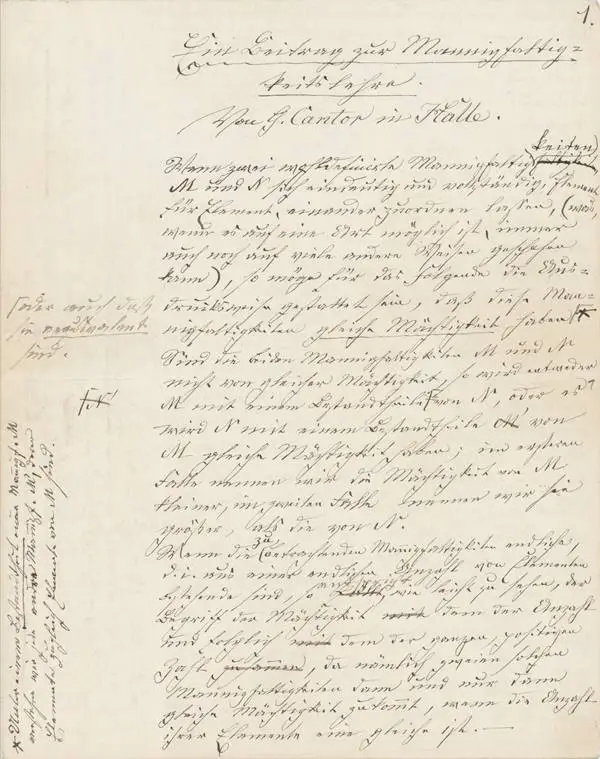 1.
Ein Beitrag zur Mannigfaltig=
keitslehre.
Von G. Cantor in Halle.
Wenn zwei wohldefinirte Mannigfaltigkeiten
M und N sich eindeutig und vollständig, Element
für Element, einander zuordnen lassen, (was,
wenn es auf eine Art möglich ist, immer
auch noch auf viele andere Weisen geschehen
kann), so möge für das Folgende die Aus=
drucksweise gestattet sein, daß diese Man=
nigfaltigkeiten gleiche Mächtigkeit haben
[oder auch daß
sie aequivalent
sind.
Sind die beiden Mannigfaltigkeiten M und N
nicht von gleicher Mächtigkeit, so wird entweder
M mit einem Bestandtheile von N, oder es
wird N mit einem Bestandtheile M' von
M gleiche Mächtigkeit haben; im ersteren
Falle nennen wir die Mächtigkeit von M
kleiner, im zweiten Falle nennen wir sie
größer, als die von N.
Wenn die zu betrachtenden Mannigfaltigkeiten endliche,
d. i. aus einer endlichen Anzahl von Elementen
bestehende sind, so entspricht, wie leicht zu sehen, der
Begriff der Mächtigkeit mit dem der Anzahl
und folglich mit dem der ganzen, positiven
Zahl zusammen, da nämlich zweien solchen
Mannigfaltigkeiten dann und nur dann
gleiche Mächtigkeit zukommt, wenn die Anzahl
ihrer Elemente eine gleiche ist. —
[N'
* Unter einem Bestandtheil einer Mannigf. M
verstehen wir jede andre Mannigf. M', deren
Elemente zugleich Elemente von M sind.